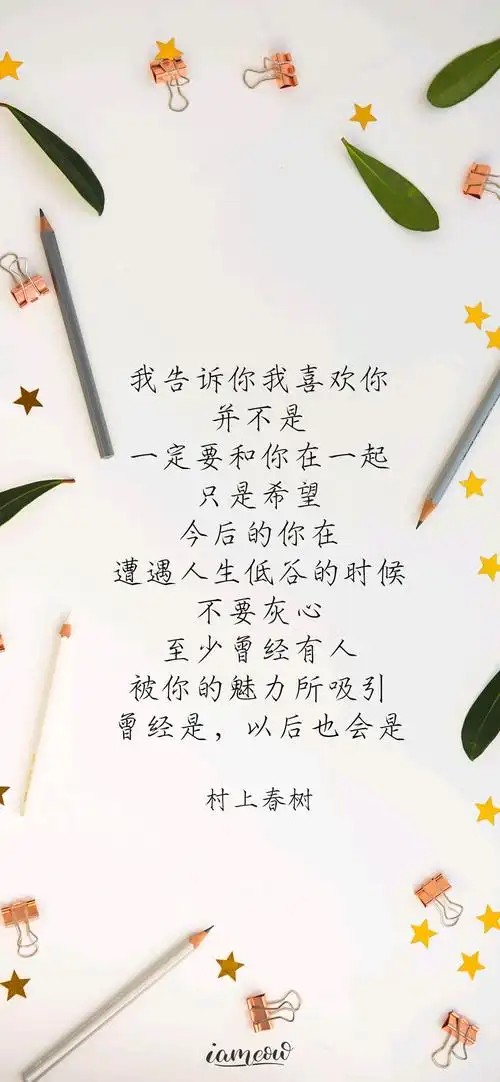 我告诉你我喜欢你
并不是
一定要和你在一起
只是希望
今后的你在
遭遇人生低谷的时候
不要灰心
至少曾经有人
被你的魅力所吸引
曾经是，以后也会是
村上春树
iameow